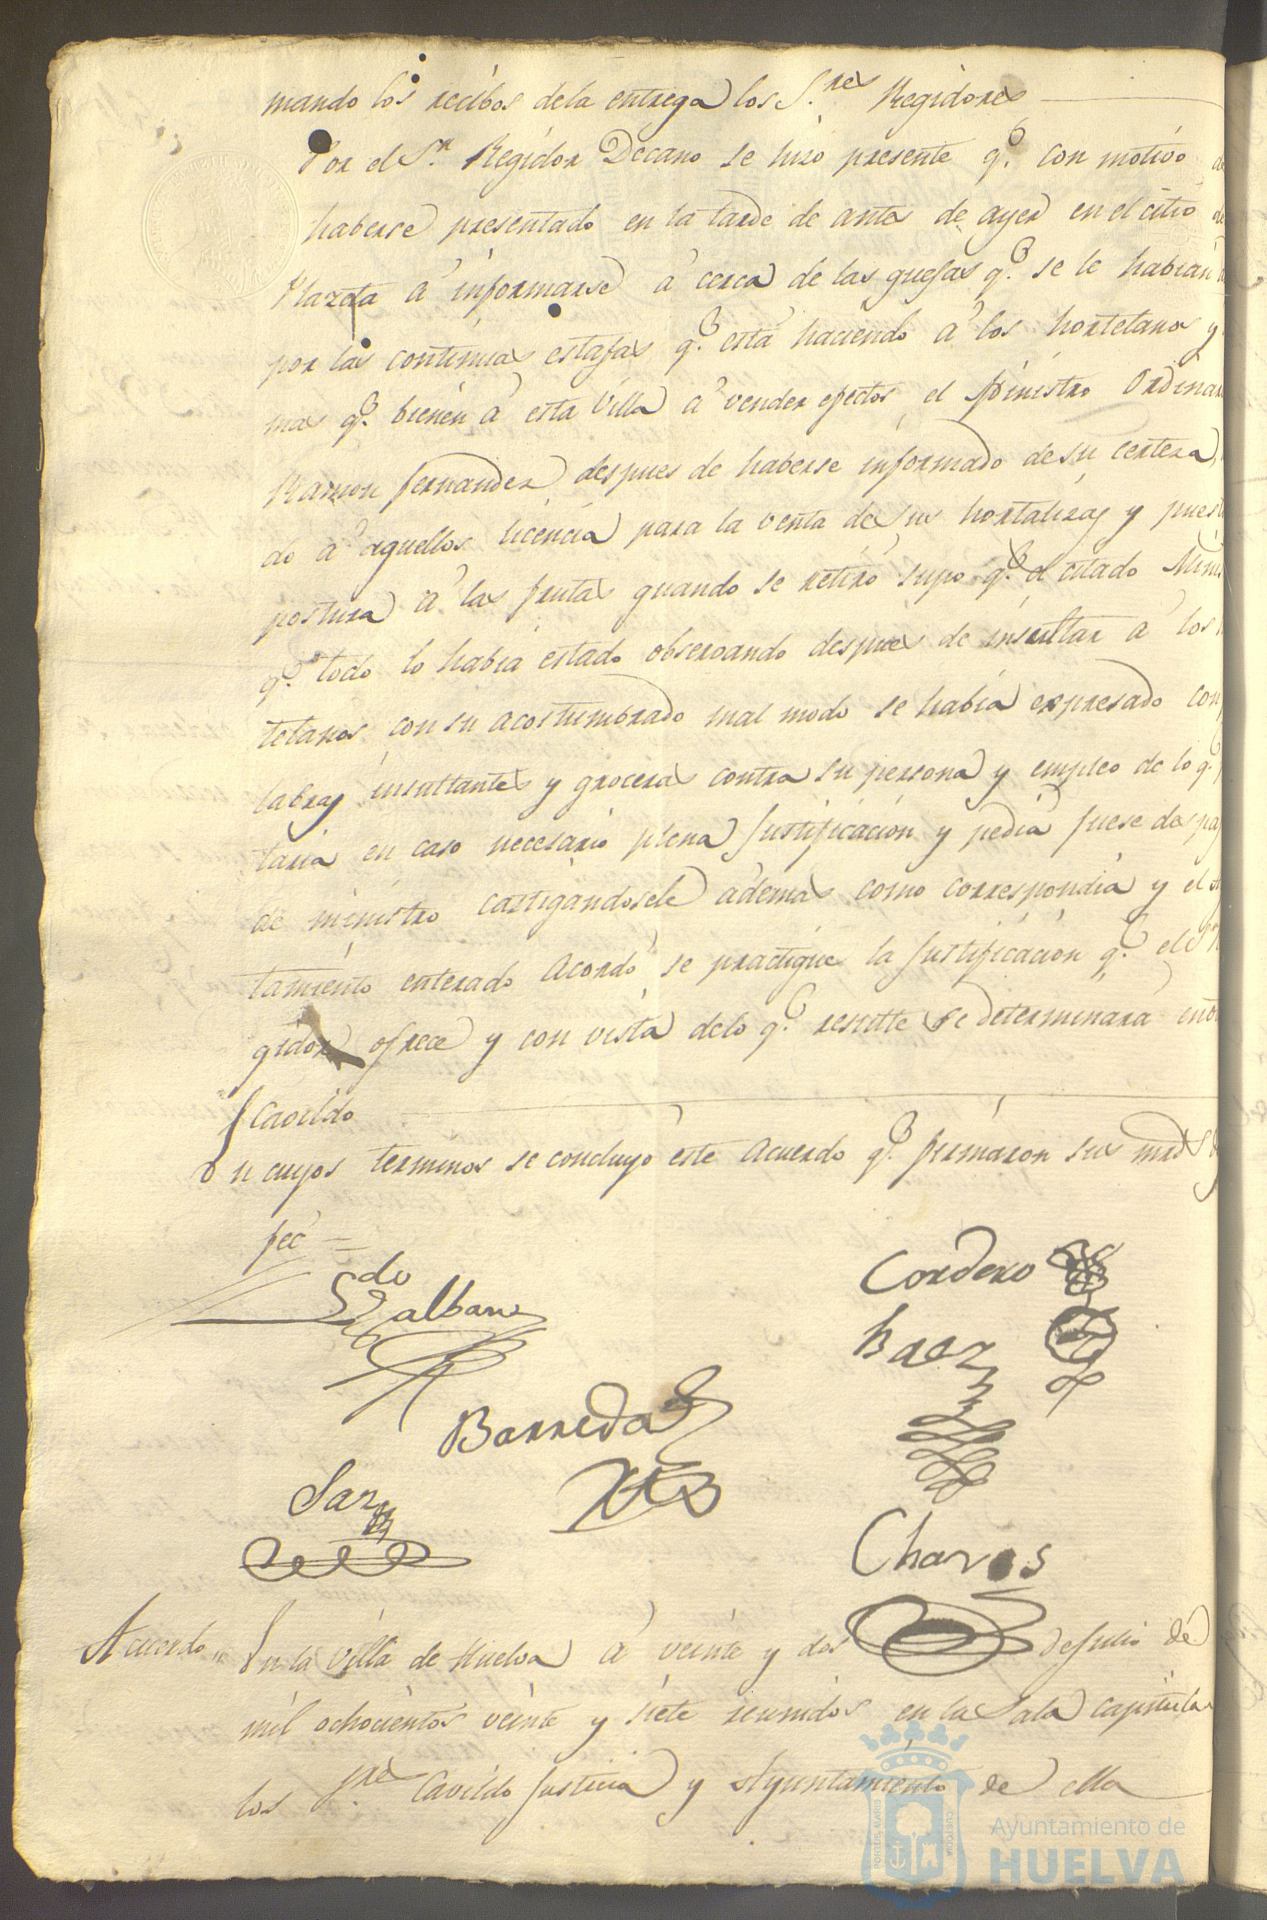 mando los recibos dela entrega los S.res Regidores
Por el S.r Regidor Decano se hizo presente q.e con motivo de
haberse presentado en la tarde de antes de ayer en el citio de
Plazeta á informarse á cerca de las quejas q.e se le habian
por las continuas estafas q.e está haciendo á los hortelanos y
mas q.e bienen á esta Villa á vender efectos, el Ministro Ordinar
Ramon Fernandez, despues de haberse informado de su certeza,
do á aquellos licencia para la venta de sus hortalizas y puest
postura á las frutas quando se retiró supo q.e el citado Mini
q.e todo lo habia estado observando despues de insultar á los
telanos con su acostumbrado mal modo se habia expresado con
labras insultantes y groceras contra su persona y empleo de lo q.e
taria en caso necesario plena Justificacion y pedia fuese des
de ministro castigandosele ademas como correspondia y el
tamiento enterado Acordó se practique la Justificacion q.e el S.r
gidor ofrece y con vista delo q.e resulte se determinará en
Cavildo
En cuyos terminos se concluyó este Acuerdo q.e firmaron sus mrds
feé =
Ldo Galban
Cordero
Baez
Barreda
Saz
Chaves
Acuerdo En la Villa de Huelva á veinte y dos de Julio de
mil ochocientos veinte y siete reunidos en la Sala capitular
los S.res Cavildo Justicia y Ayuntamiento de ella
Ayuntamiento de
HUELVA